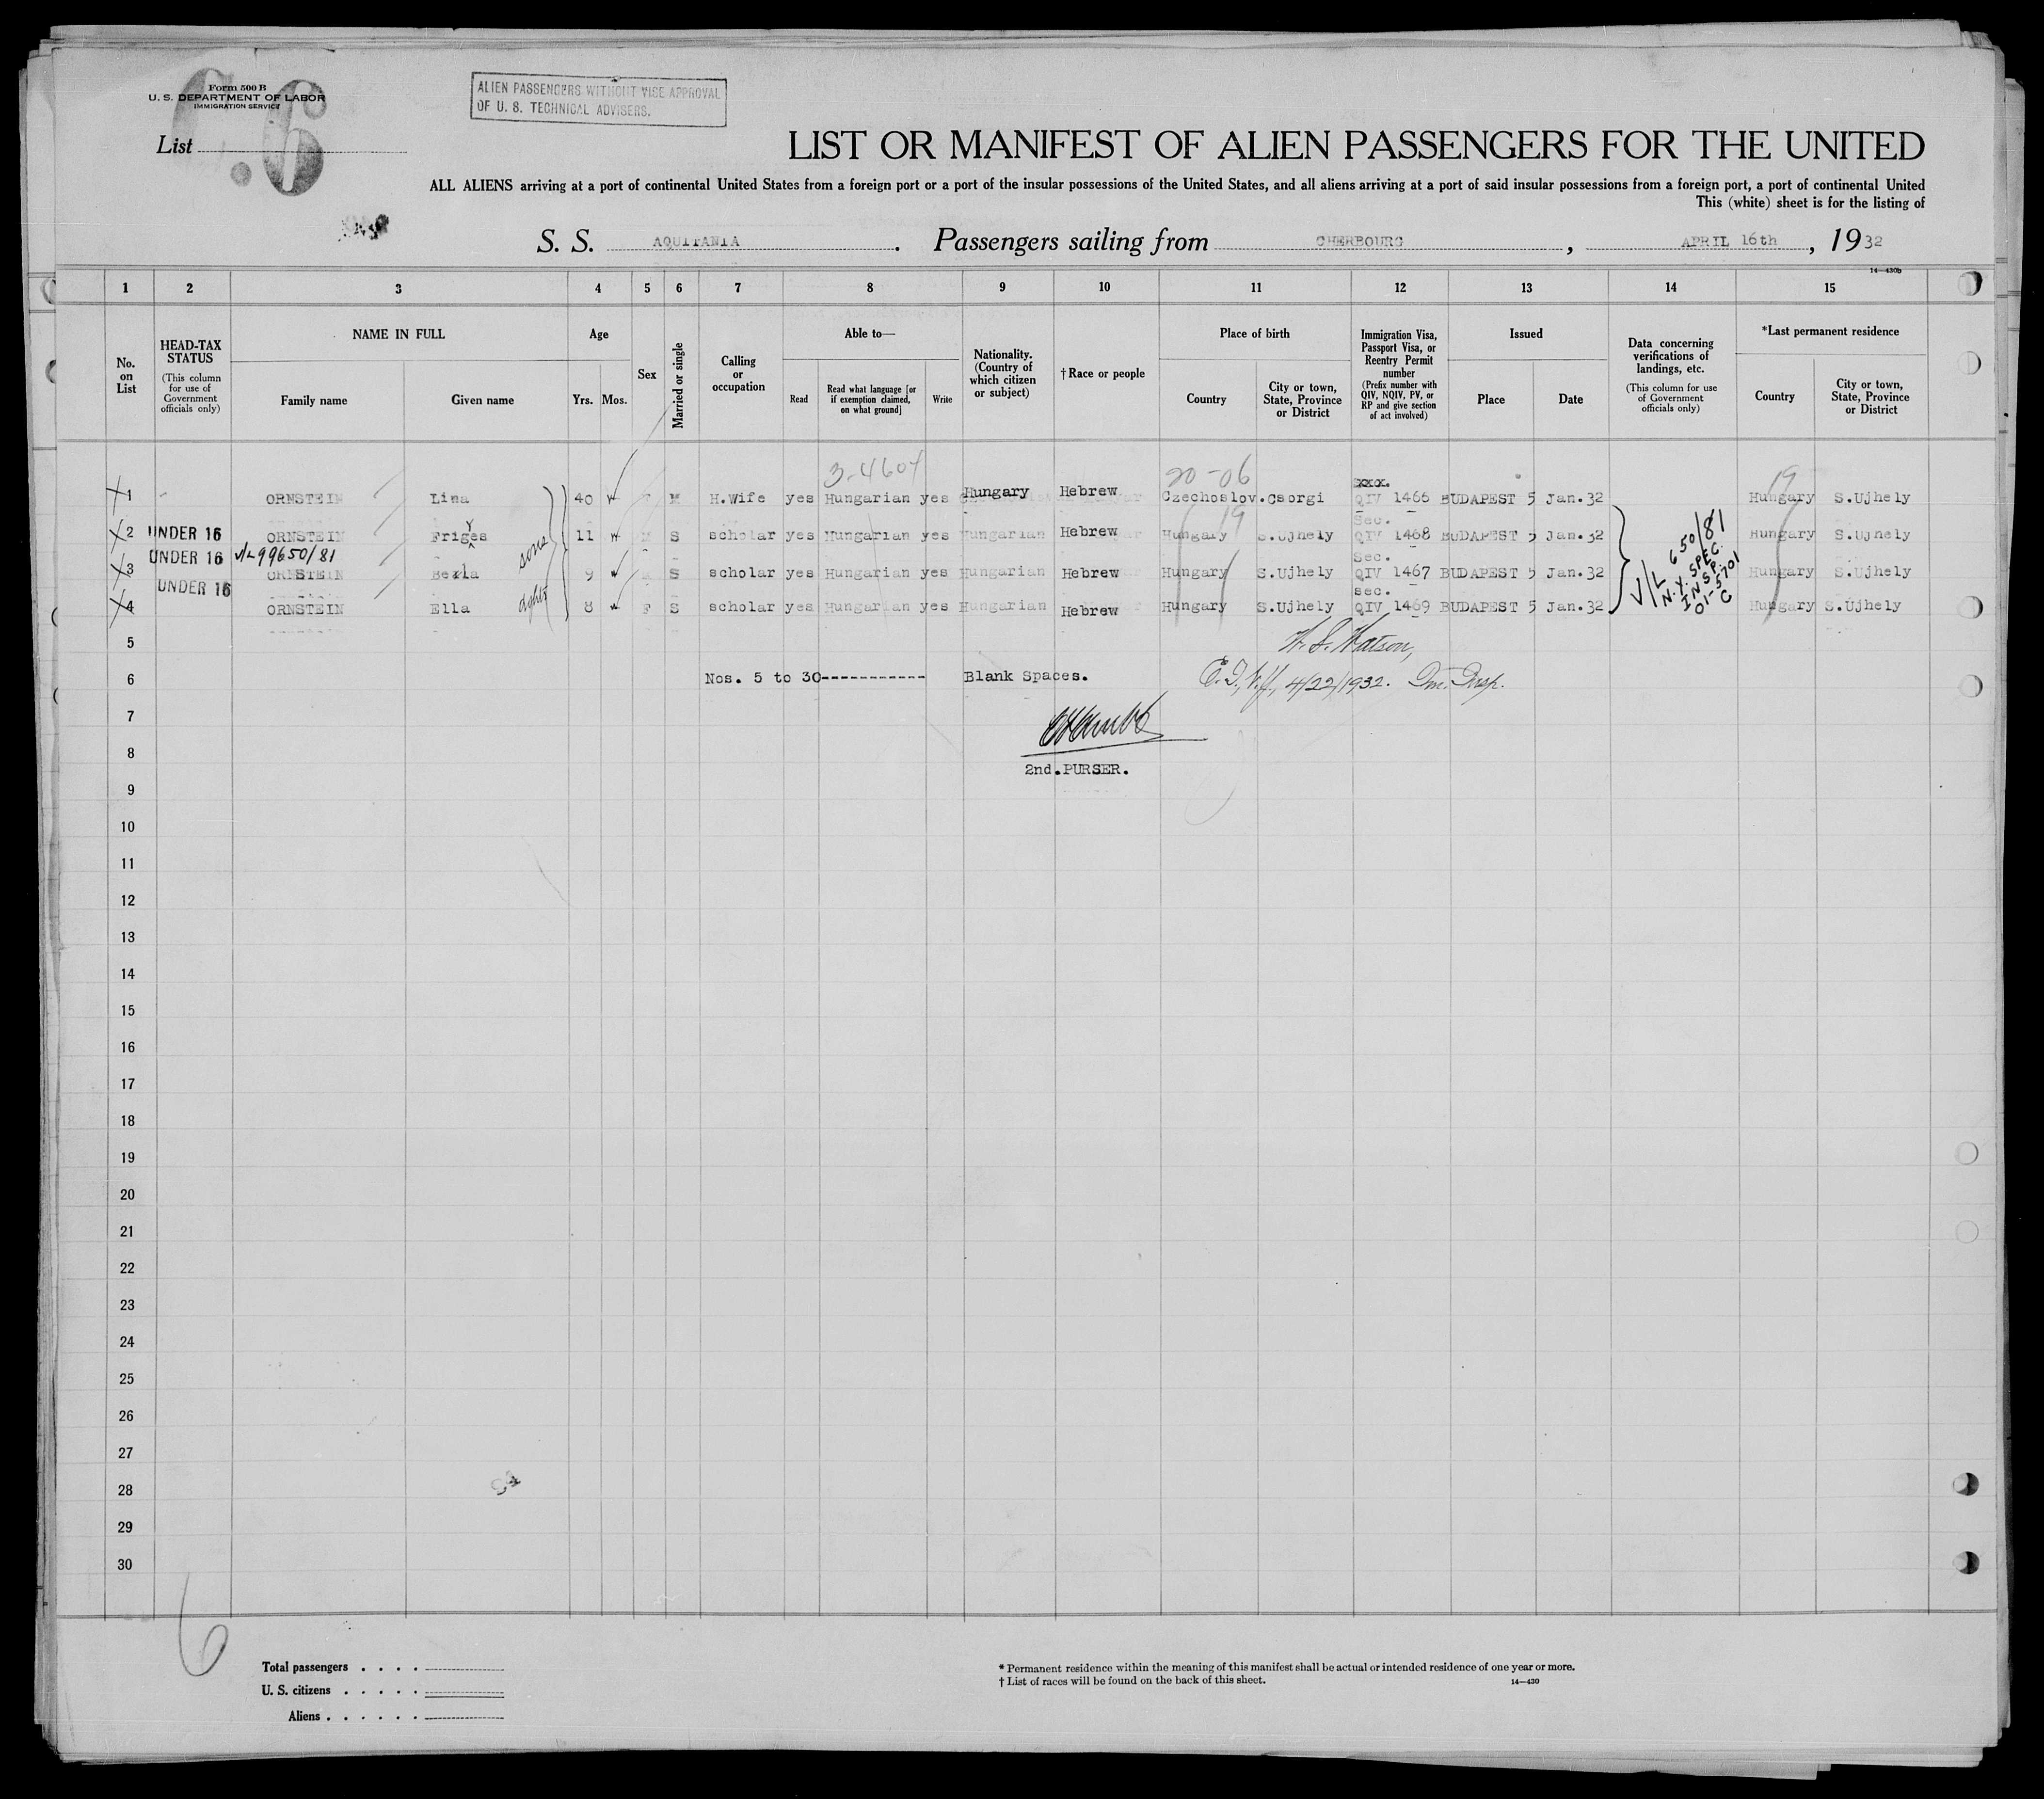 Form 500 B
U. S. DEPARTMENT OF LABOR
IMMIGRATION SERVICE
6
ALIEN PASSENGERS WITHOUT VISE APPROVAL
OF U. S. TECHNICAL ADVISERS.
List
LIST OR MANIFEST OF ALIEN PASSENGERS FOR THE UNITED
ALL ALIENS arriving at a port of continental United States from a foreign port or a port of the insular possessions of the United States, and all aliens arriving at a port of said insular possessions from a foreign port, a port of continental United
This (white) sheet is for the listing of
S. S. AQUITANIA. Passengers sailing from CHERBOURG, APRIL 16th, 1932
14—430b
1 2 3 4 5 6 7 8 9 10 11 12 13 14 15
No. on List
HEAD-TAX STATUS
(This column for use of Government officials only)
NAME IN FULL
Family name
Given name
Age
Yrs. Mos.
Sex
Married or single
Calling or occupation
Able to—
Read
Read what language [or if exemption claimed, on what ground]
Write
Nationality. (Country of which citizen or subject)
†Race or people
Place of birth
Country
City or town, State, Province or District
Immigration Visa, Passport Visa, or Reentry Permit number
(Prefix number with QIV, NQIV, PV, or RP and give section of act involved)
Issued
Place
Date
Data concerning verifications of landings, etc.
(This column for use of Government officials only)
*Last permanent residence
Country
City or town, State, Province or District
3-4604 20-06 19
xxx.
1 ORNSTEIN Lina 40 M H.Wife yes Hungarian yes Hungary Hebrew Czechoslov. Csorgi QIV 1466 BUDAPEST 5 Jan.32 Hungary S.Ujhely
Y 19 Sec.
2 UNDER 16 ORNSTEIN Friges sons 11 S scholar yes Hungarian yes Hungarian Hebrew Hungary S.Ujhely QIV 1468 BUDAPEST 5 Jan.32 Hungary S.Ujhely
UNDER 16 V/L 99650/81 Sec.
3 ORNSTEIN 9 S scholar yes Hungarian yes Hungarian Hebrew Hungary S.Ujhely QIV 1467 BUDAPEST 5 Jan.32 Hungary S.Ujhely
UNDER 16 sec.
4 ORNSTEIN Ella 8 F S scholar yes Hungarian yes Hungarian Hebrew Hungary S.Ujhely QIV 1469 BUDAPEST 5 Jan.32 Hungary S.Ujhely
V/L 650/81
N.Y. SPEC.
INSP.
01-5701
C
5
W. S. Watson,
6 Nos. 5 to 30------------ Blank Spaces. 4/22/1932. Im. Insp.
7
8
2nd.PURSER.
9
10
11
12
13
14
15
16
17
18
19
20
21
22
23
24
25
26
27
28
29
30
6
Total passengers . . . .
U. S. citizens . . . . .
Aliens . . . . . .
* Permanent residence within the meaning of this manifest shall be actual or intended residence of one year or more.
† List of races will be found on the back of this sheet.
14—430